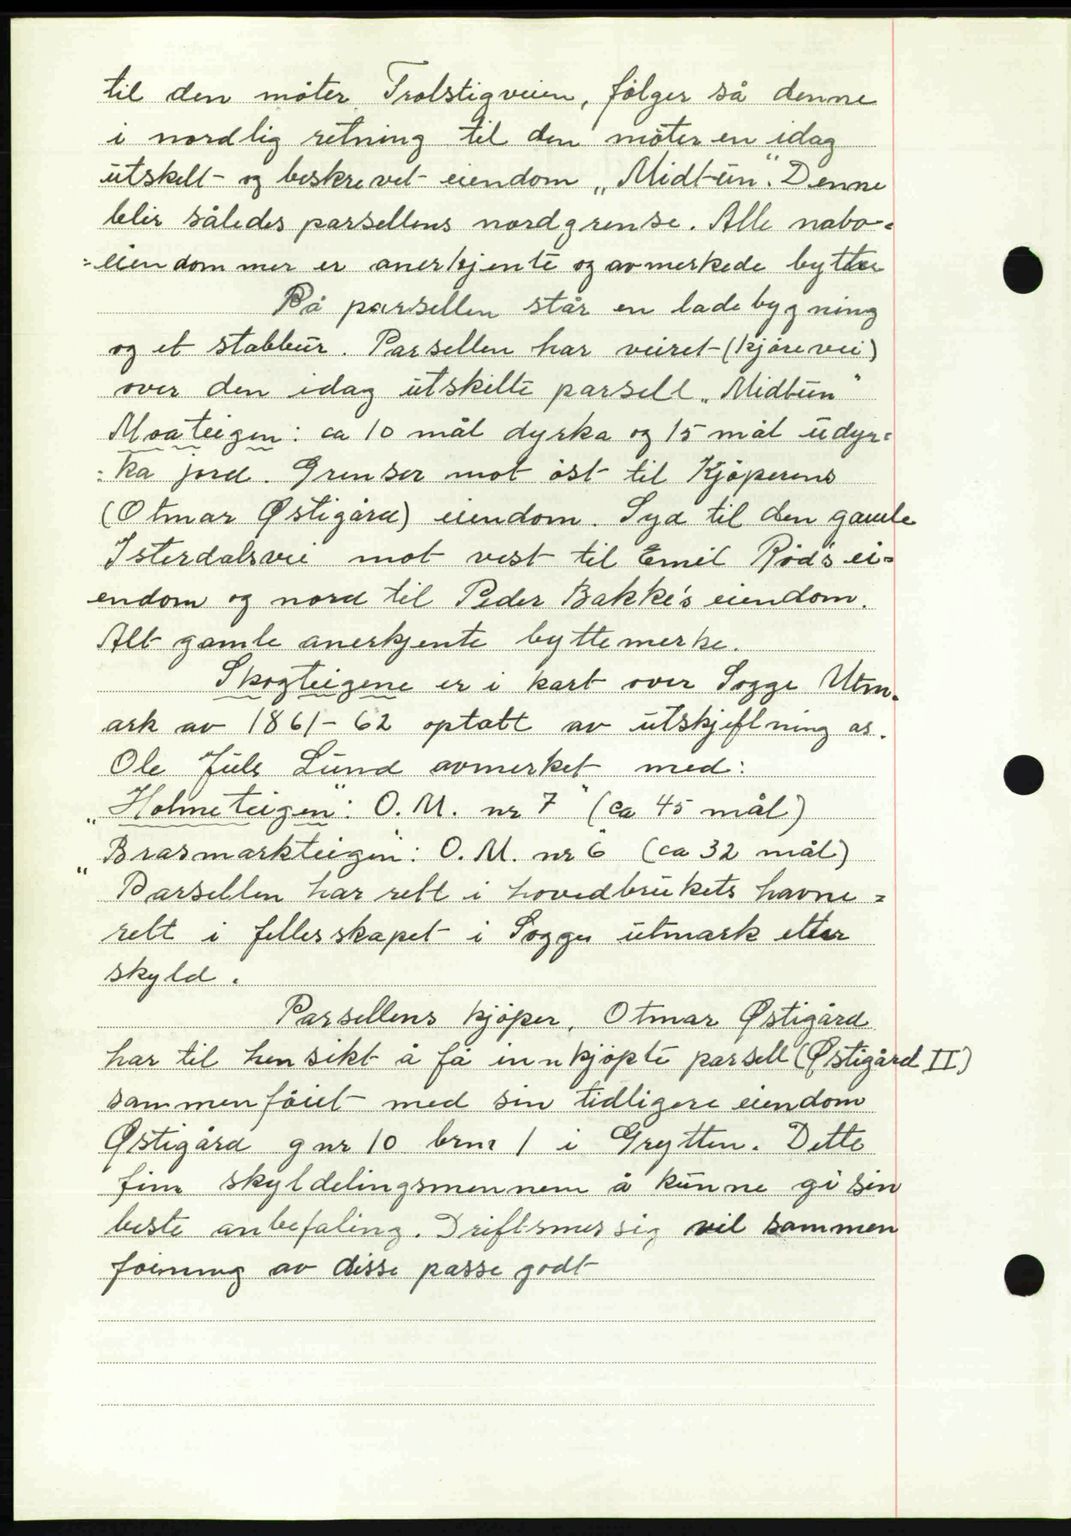 til den möter Trolstigveien, følger så denne
i nordlig retning til den möter en idag
utskilt og beskrevet eiendom „Midtun". Denne
blir således parsellens nordgrense. Alle nabo-
=eiendommer er anerkjente og avmerkede bytter
På parsellen står en ladebygning
og et stabbur. Parsellen har veiret (kjörevei)
over den idag utskilte parsell „Midtun"
Moateigen: ca 10 mål dyrka og 15 mål udyr=
=ka jord. Grenser mot öst til Kjöperens
(Otmar Østigård) eiendom. Syd til den gamle
Isterdalsvei mot vest til Emil Röd's ei=
endom og nord til Peder Bakke's eiendom.
Alt gamle anerkjente byttemerke.
Skogteigene er i kart over Sogge Utm.
ark av 1861-62 optatt av utskjeftning as.
Ole Juls Lund avmerket med:
„Holmeteigen": O.M. nr 7" (ca 45 mål)
„Brasmarkteigen": O.M. nr 6" (ca 32 mål)
Parsellen har rett i hovedbrukets havne=
rett i fellesskapet i Sogge utmark etter
skyld.
Parsellens kjöper, Otmar Østigård
har til hensikt å få innkjöpte parsell (Østigård II)
sammenföiet med sin tidligere eiendom
Østigård gnr 10 brnr 1 i Grytten. Dette
finn skyldelingsmennene å kunne gi sin
beste anbefaling. Driftsmessig vil sammen
föining av disse passe godt